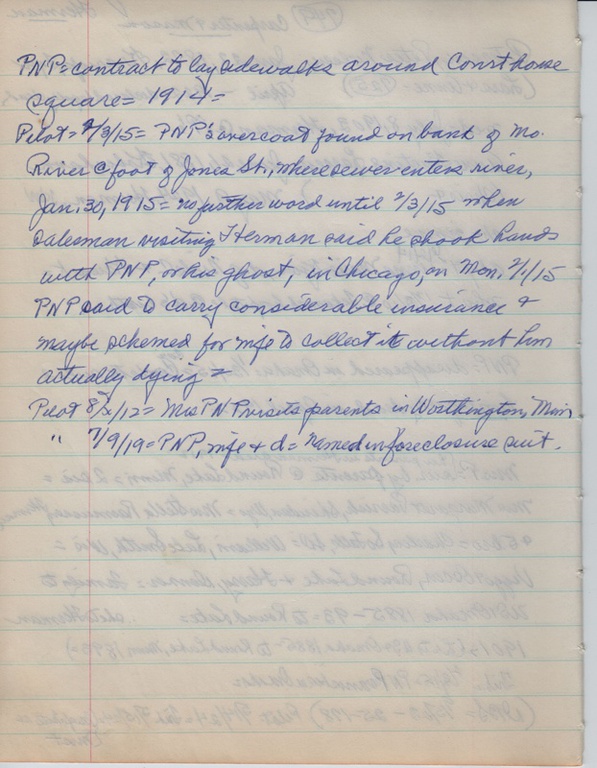 PNP = contract to lay sidewalks around Courthouse
square = 1914 =
Pilot = 2/3/15 = PNP's overcoat found on bank of Mo.
River @ foot of Jones St., where sewer enters river,
Jan. 30, 1915 = no further word until 2/3/15 when
salesman visiting Herman said he shook hands
with PNP, or his ghost, in Chicago, on Mon. 2/1/15
PNP said to carry considerable insurance &
maybe schemed for wife to collect it without him
actually dying =
Pilot 8/ /12 = Mrs PNP visits parents in Worthington, Minn
" 7/9/19 = PNP, wife & d = named in foreclosure suit.